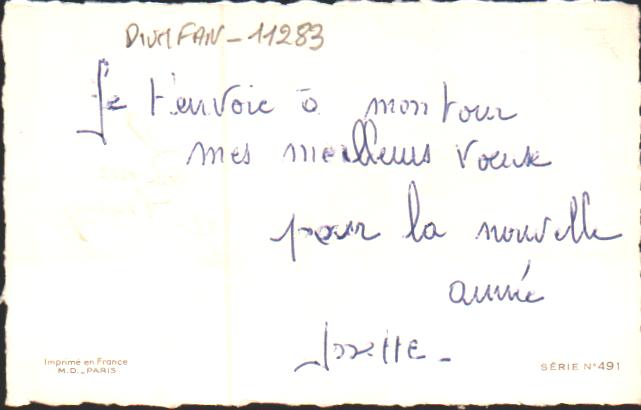 DIVFAN-11283
Je t'envoie à mon tour
mes meilleurs voeux
pour la nouvelle
année
Josette -
Imprimé en France
M.D. - PARIS
SÉRIE N° 491